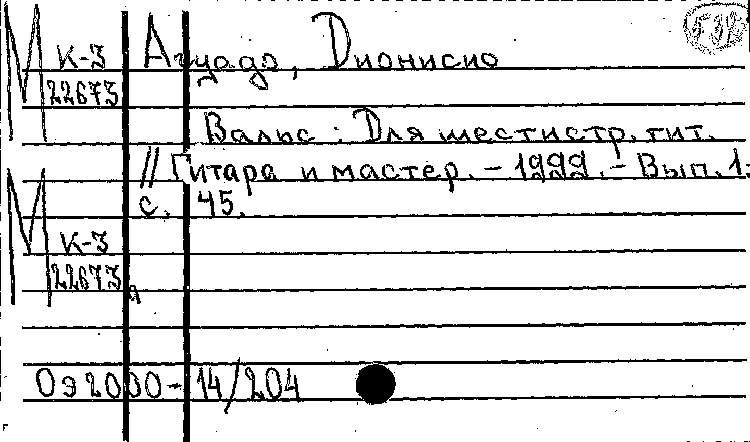 М К-3 Агуадо, Дионисио
22673
Вальс : Для шестистр. гит.
// Гитара и мастер. - 1999. - Вып. 1.
с. 45.
М К-3
22673
Оэ2000-14/204